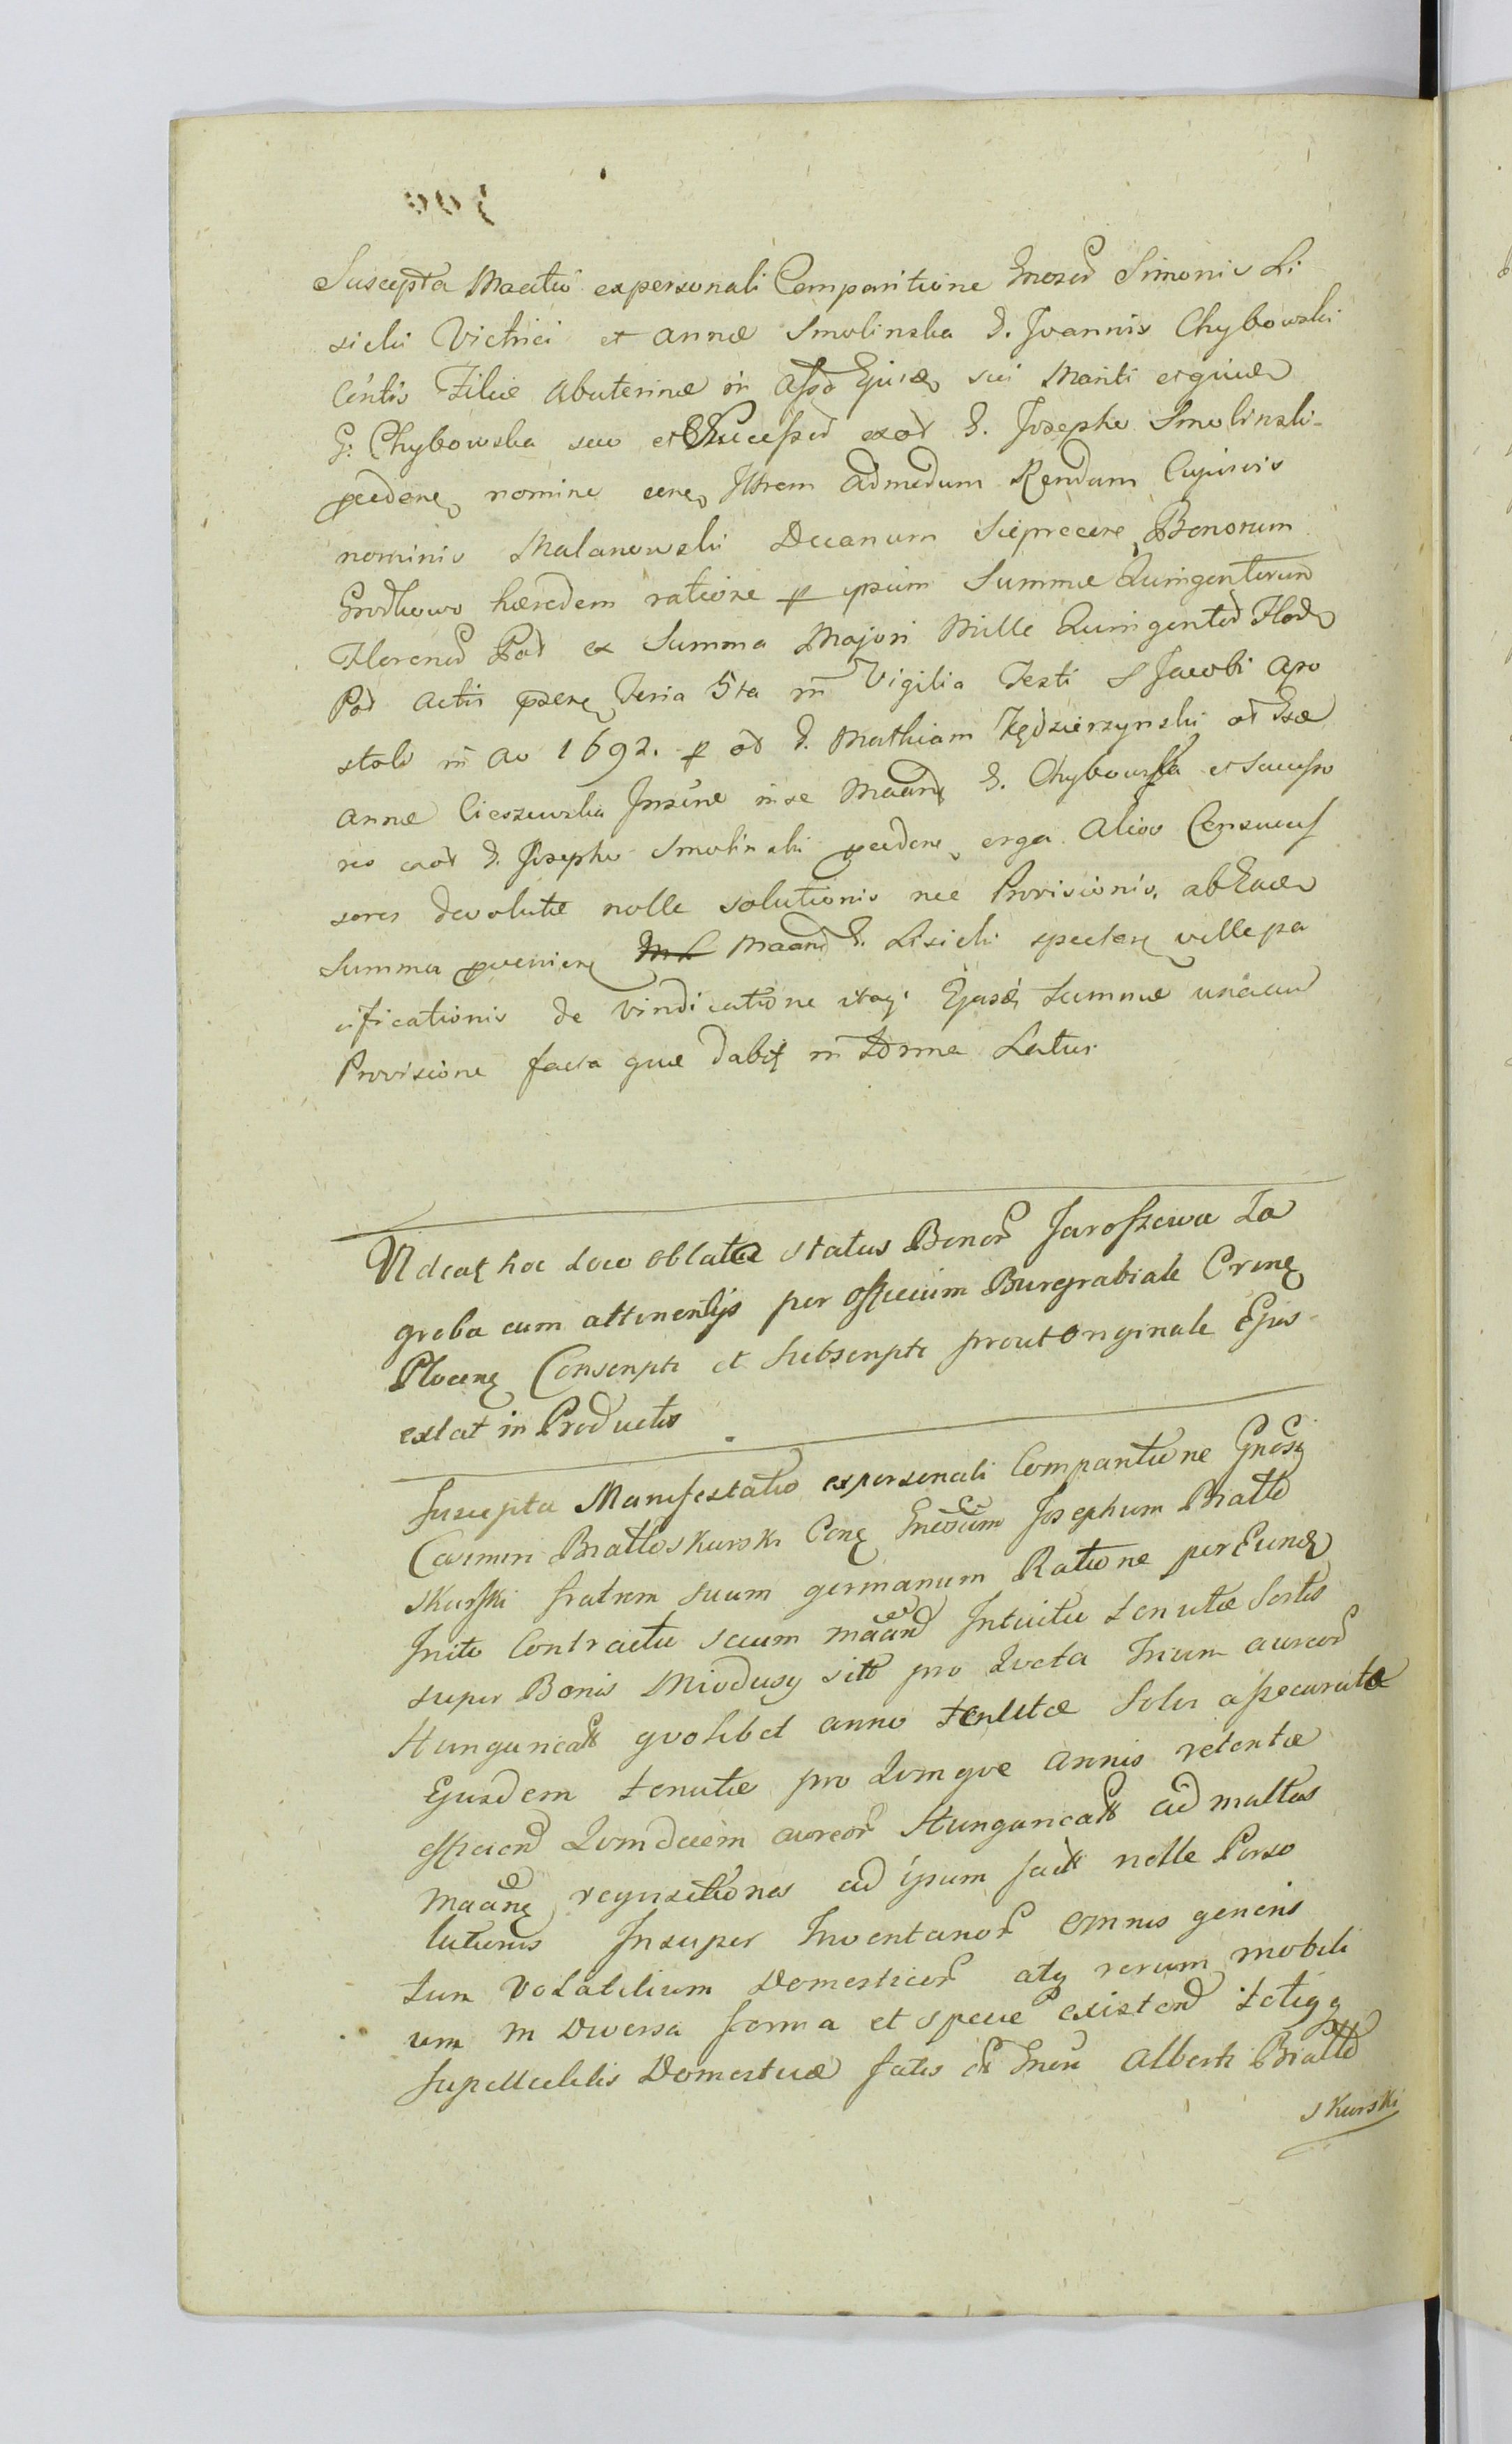 Suscepta Maatio expersonali Comparitione Gnosor Simonis Li
sicki Victrici et Annæ Smolinska G. Joannis Chybowski
Contis Filiæ abuterinæ in Assa Ejusd sui Mariti ergiued
G. Chybowska seu et Successor exod G. Josepho Smolinski
pcedene nomine Illtrem admodum Rendum Cujusvis
nominis Malanowski Decanum Sieprecens Bonorum
Grodkowo hæredem ratione ipsum Summæ Quingentorum
Florenor Pol ex Summa Majori Mille Quingentor Flor
Pol Actis psene Feria 5ta in Vigilia Festi S Jacobi Apo
stoli in Ao 1692. p G. Mathiam Kędzierzynski
Annæ Cieszewska Inscne in se Maane G. Chybowska et Successo
res G. Josepho Smolinski pcedene erga alios Censucces
sores devolutæ nolle solutionis nec Provisionis, ab Eaed
Summa pvenient Maand G. Lisicki spectant velle pa
cificationis de vindicatione itaq Ejusd Summæ unacum
Provisione facta quæ dabit in Forma Latius
Videat hoc loco oblata Status Bonor Jaroszewa La
groba cum attinentijs per Officium Burgrabiale Crene
Plocene Conscripti et Subscripti prout Originale Ejus
extat in Productis
Suscepta Manifestatio expersonali Comparitione Gnosi
Casimiri Białłoskurski Cone Gnosum Josephum Białło
skurski fratrem suum germanum Ratione per Eund
Inito Contractu secum maand Intuitu tenutæ Sortis
super Bonis Miodusy sitt pro Quota Trium aureor
Hungaricall quolibet anno tenutæ Solvi assecuratæ
Ejusdem tenutæ pro Quinque annis retentæ
efficiend Quindecim aureor Hungaricall ad multas
maane requisitiones ad ipsum fact nolle Perso
lutionis Insuper Inventarior omnis generis
tum volatilium Domesticor atq rerum mobili
um in Diversa forma et specie existend totiqq
supellectilis Domesticæ fatis Gnosi Alberti Białło
skurski